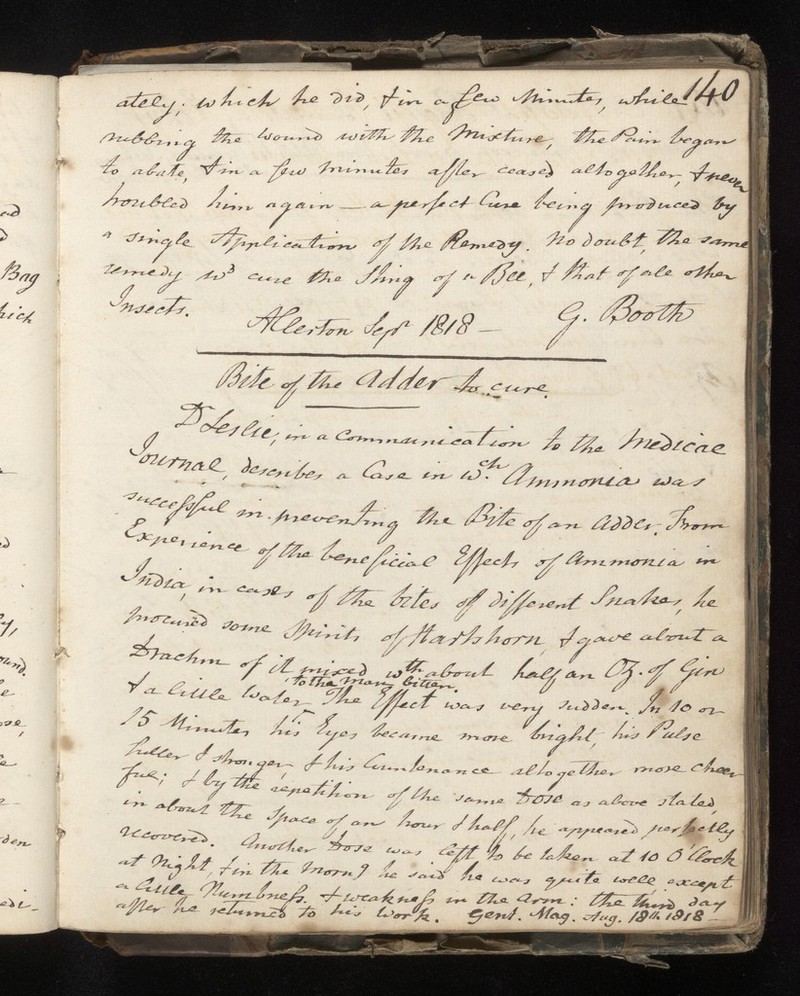 140
ately; which he did, & in a few Minutes, while
rubbing the wound with the Mixture, the Pain began
to abate, & in a few minutes after ceased altogether, & never
troubled him again — a perfect Cure being produced by
a single Application of the Remedy. No doubt, the same
remedy wd cure the Sting of a Bee, & that of all other
Insects.
Allerton Sepr 1818 — G. Booth
Bite of the Adder to cure.
Dr Leslie, in a Communication to the Medical
Journal, describes a Case in wch Ammonia was
successful in preventing the Bite of an Adder. From
Experience of the beneficial Effects of Ammonia in
India, in cases of the bites of different Snakes, he
procured some Spirits of Hartshorn, & gave about a
Drachm of it mixed wth about half an Oz. of Gin
to the Man bitten.
& a little Water. The Effect was very sudden. In 10 or
15 Minutes his Eyes became more bright, his Pulse
fuller & stronger, & his Countenance altogether more cheer
ful; & by the repetition of the same Dose as above stated,
in about the Space of an hour & half, he appeared perfectly
recovered. Another Dose was left to be taken at 10 O'Clock
at Night, & in the Morng he said he was quite well except
a little Numbness & weakness in the Arm: the third day
after he returned to his Work. Gent. Mag. Aug. 18th 1818
Bag
hich
ound.
den
edi-